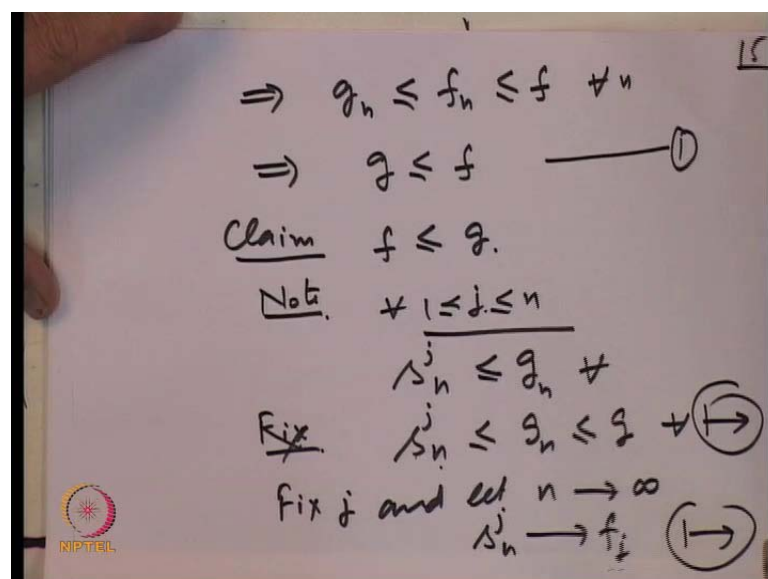 15
⇒ gₙ ≤ fₙ ≤ f ∀ n
⇒ g ≤ f ——— ①
Claim f ≤ g.
Note. ∀ 1 ≤ j ≤ n
sₙʲ ≤ gₙ ∀
Fix. sₙʲ ≤ gₙ ≤ g ∀ (↦)
Fix j and let n → ∞
sₙʲ → fⱼ (↦)
NPTEL